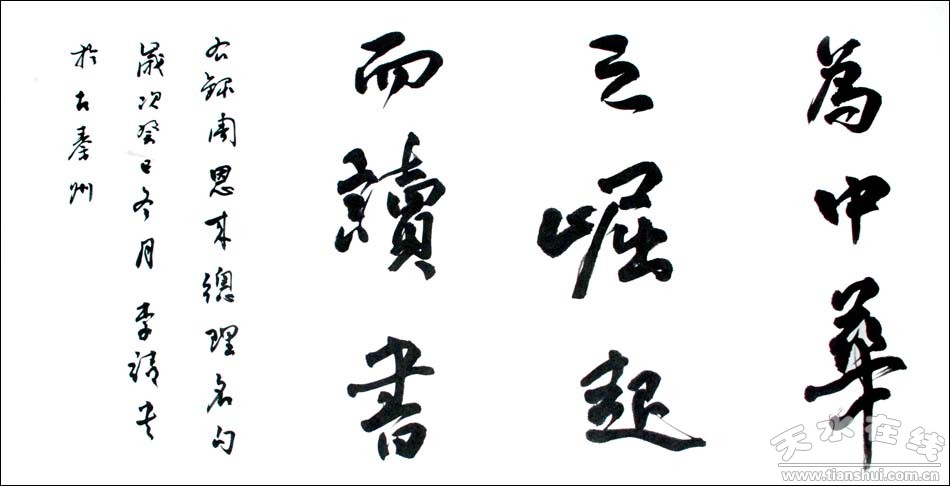 為中華
之崛起
而讀書
右録周恩来總理名句
歲次癸巳冬月 李
於古秦州
天水在线
www.tianshui.com.cn